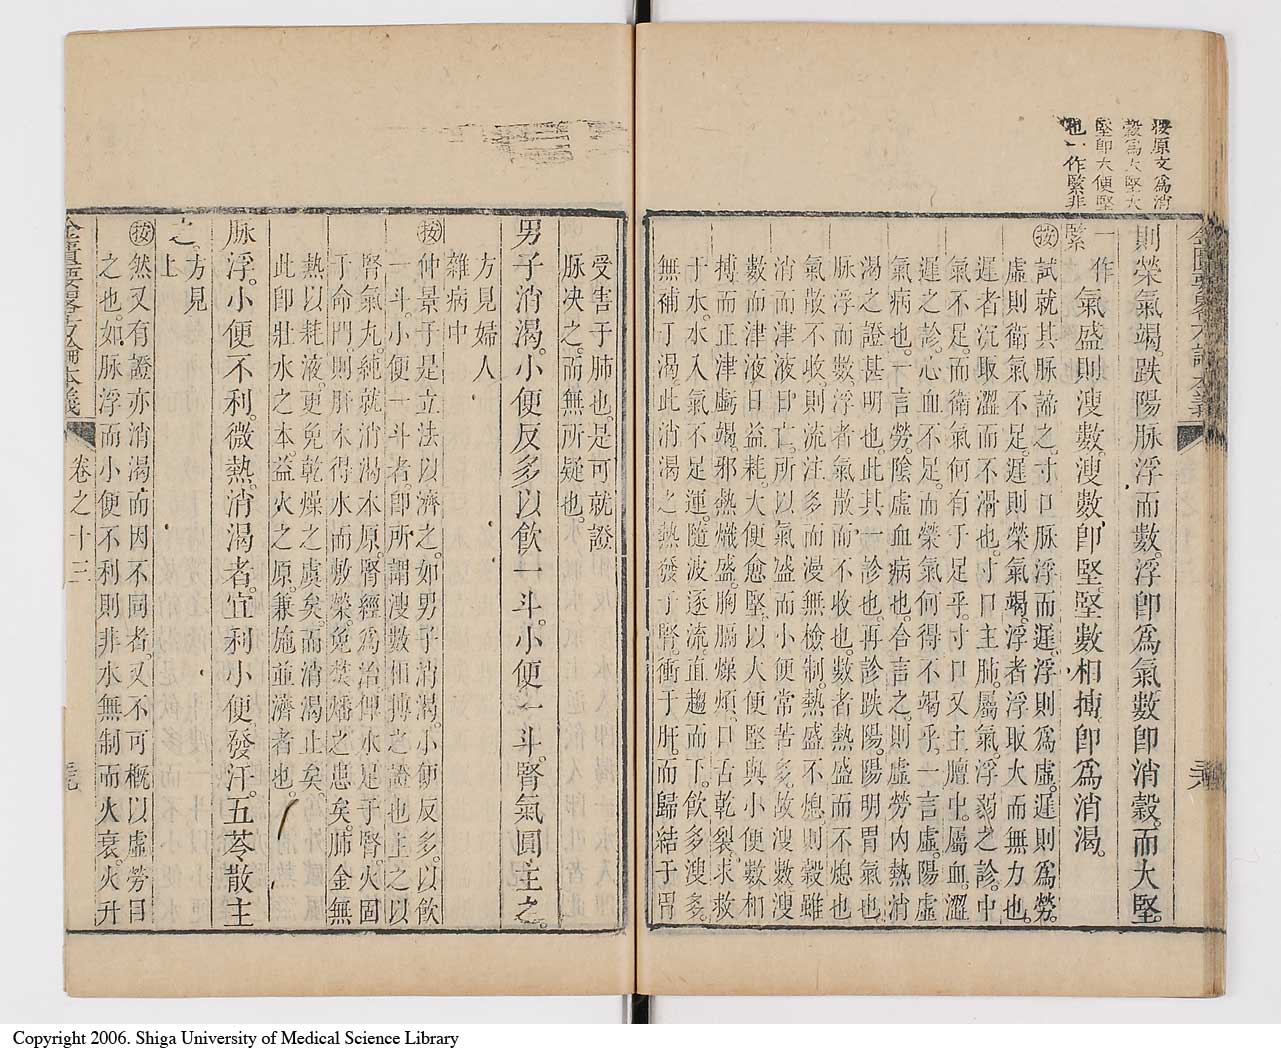 按原文爲消
穀爲大堅大
堅即大便堅
也一作緊非
則榮氣竭。趺陽脉浮而數。浮卽爲氣數卽消穀。而大堅。
一作緊
氣盛則溲數。溲數卽堅。堅數相搏。卽爲消渴。
按試就其脉諦之。寸口脉浮而遲。浮則爲虛。遲則爲勞。
虛則衛氣不足。遲則榮氣竭。浮者浮取大而無力也。
遲者沉取澀而不滑也。寸口主肺。屬氣。浮弱之診。中
氣不足。而衛氣何有于足乎。寸口又主膻中。屬血。澀
遲之診。心血不足。而榮氣何得不竭乎。一言虛。陽虛
氣病也。一言勞。陰虛血病也。合言之。則虛勞內熱消
渴之證甚明也。此其一診也。再診趺陽。陽明胃氣也
脉浮而數。浮者氣散而不收也。數者熱盛而不熄也
氣散不收。則流注多而漫無檢制。熱盛不熄。則穀雖
消而津液日亡。所以氣盛而小便常苦多。故溲數。溲
數而津液日益耗。大便愈堅。以大便堅與小便數相
搏而正津虧竭。邪熱熾盛。胸膈燥煩。口舌乾裂。求救
于水。水入氣不足運。隨波逐流。直趨而下。飲多溲多。
無補于渴。此消渴之熱發于腎。衝于肝。而歸結于胃
受害于肺也。是可就證
脉決之。而無所疑也。
男子消渴。小便反多。以飲一斗。小便一斗。腎氣圓主之。
方見婦人
雜病中
按仲景于是立法以濟之。如男子消渴。小便反多。以飲
一斗。小便一斗者。卽所謂溲數相搏之證也。主之以
腎氣丸。純就消渴本原。腎經爲治。俾水足于腎。火固
于命門。則肝木得水而敷榮。免焚燔之患矣。肺金無
熱以耗液。更免乾燥之虞矣。而消渴止矣
此卽壯水之本。益火之原。兼施並濟者也。
脉浮。小便不利。微熱。消渴者。宜利小便。發汗。五苓散主
之。方見
上
按然又有證亦消渴。而因不同者。又不可概以虛勞目
之也。如脉浮而小便不利。則非水無制而火衰。火升
金匱要畧方論本義 卷之十三